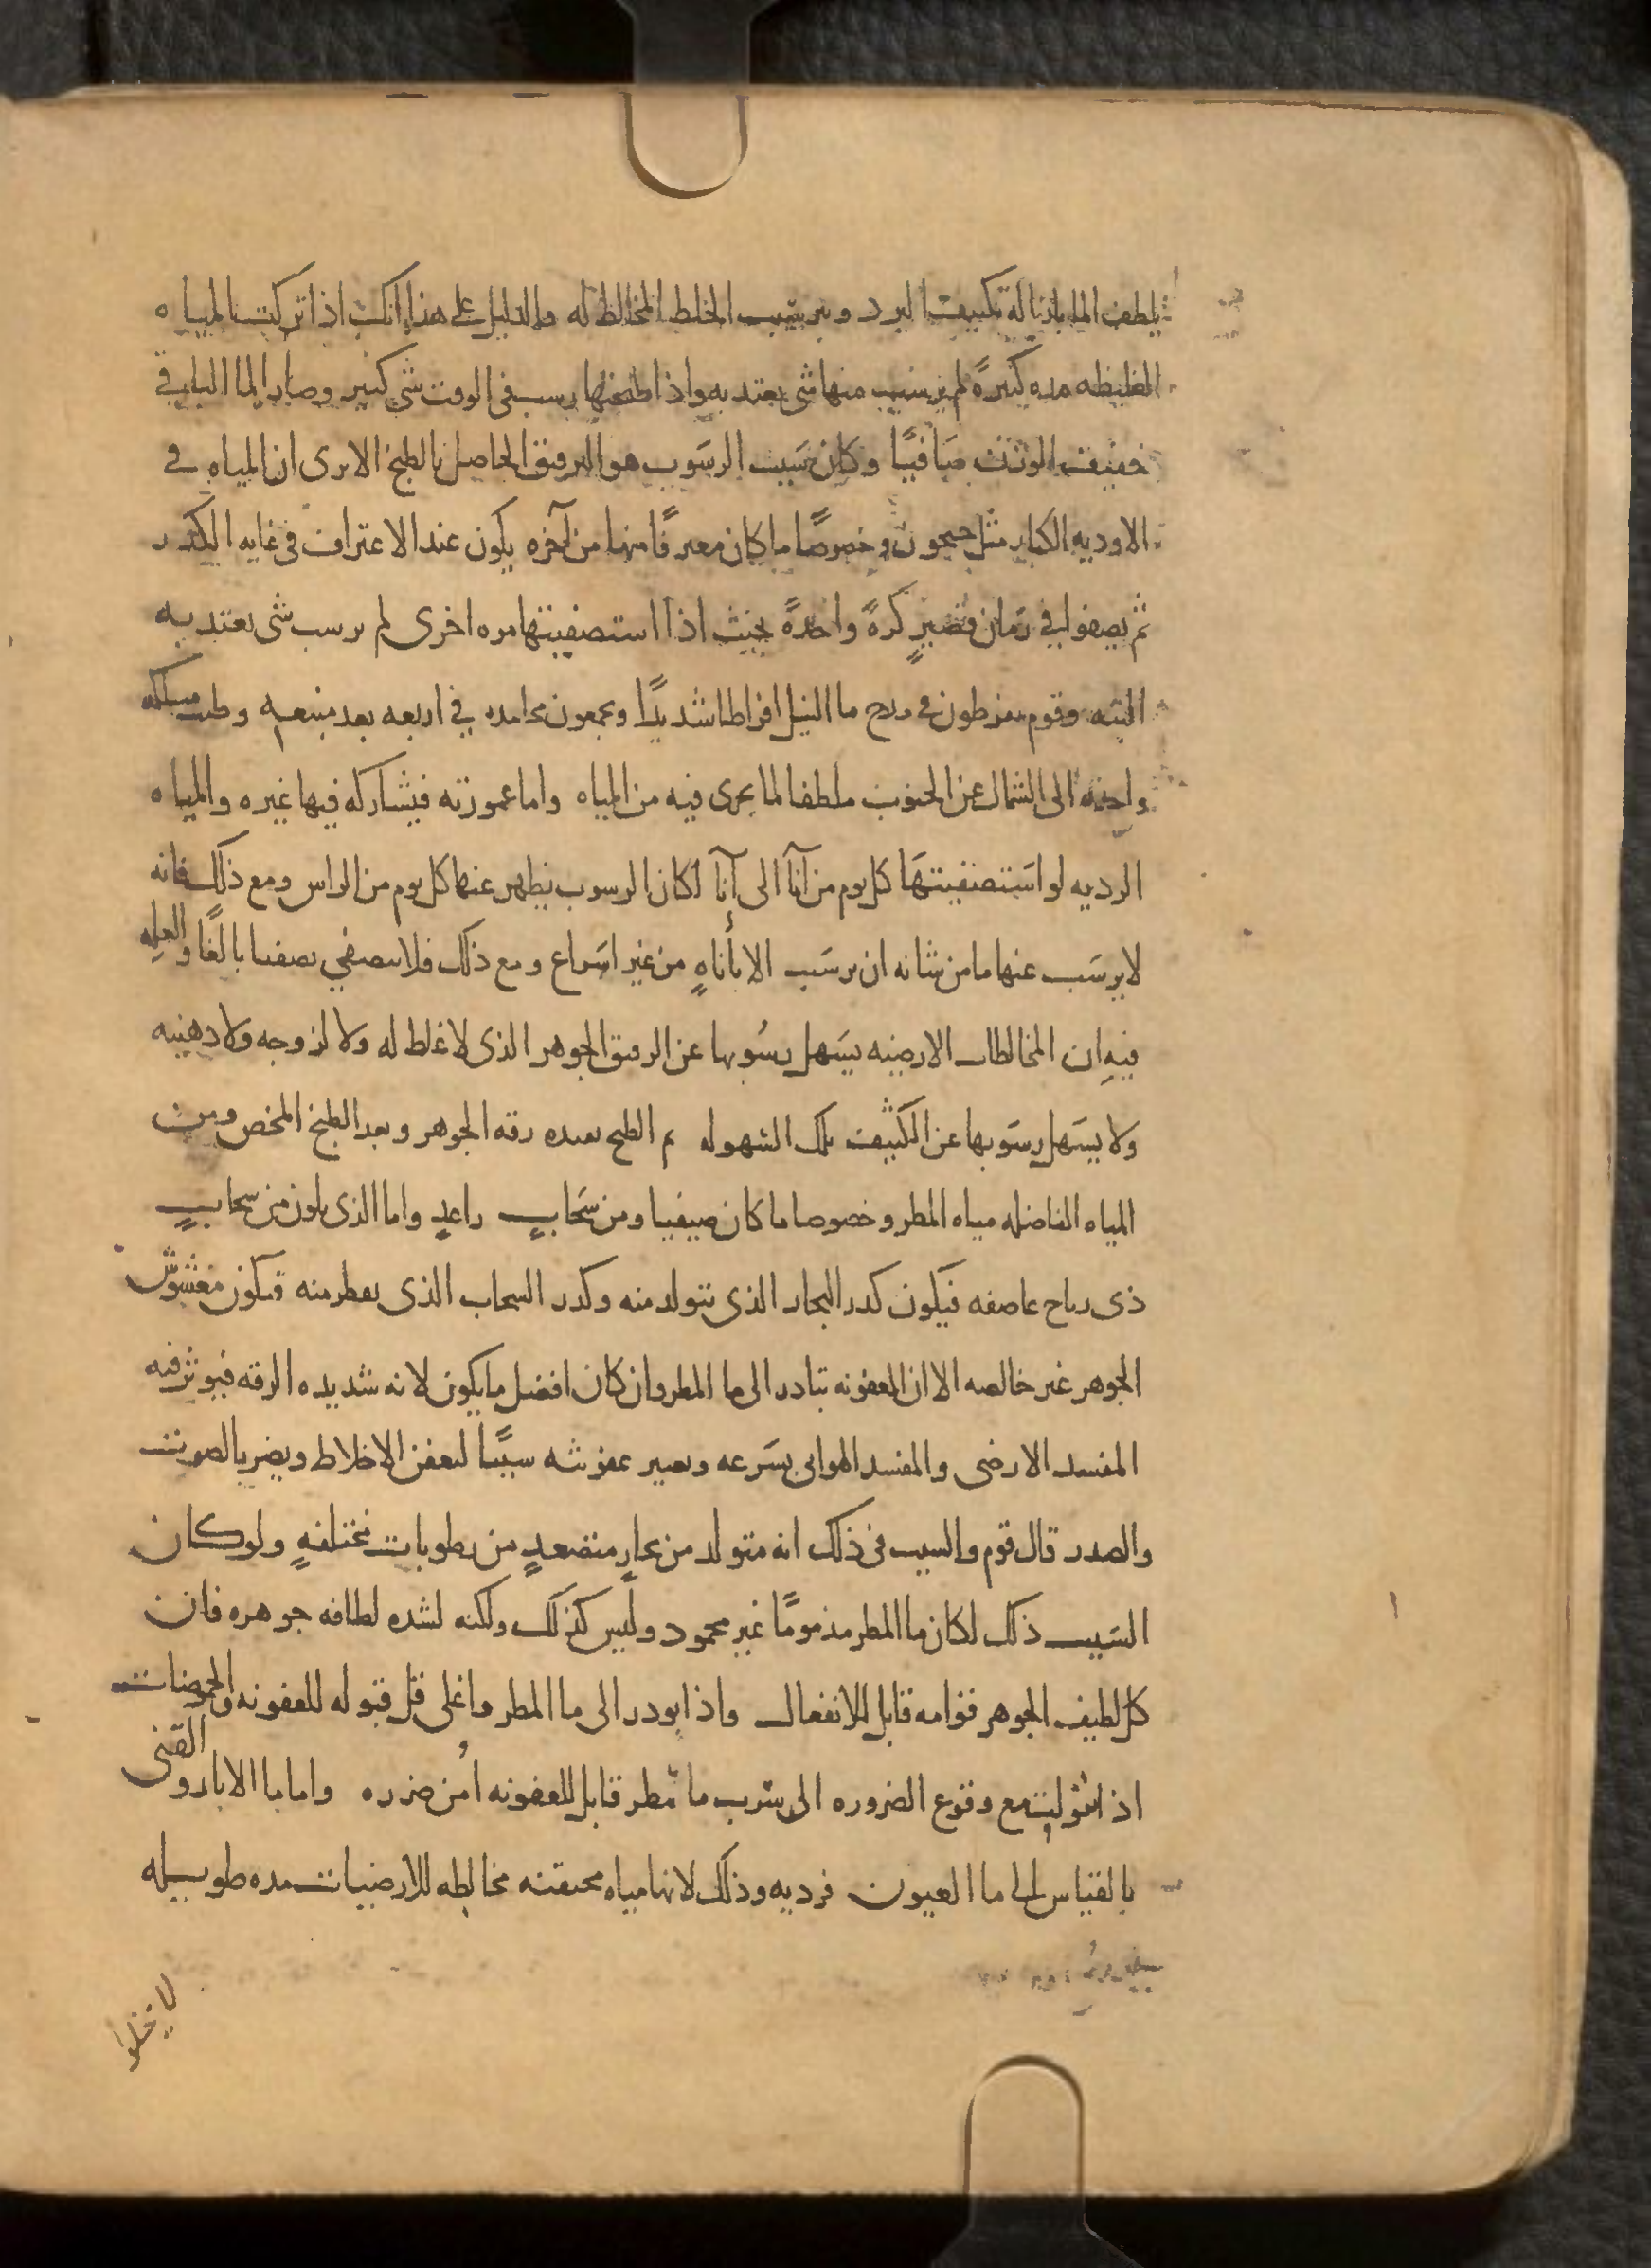 يلطف الما بازالة تكثيف البرد وبترسيب الخلط المخالط له والدليل على هذا انك اذا تركت المياه
الغليظه مده كثيرةً لم يرسب منها شى يعتد به واذا طبختها رسب فى الوقت شى كثير وصار الما الباقى
خفيف الوزن صَافيًا وكان سَبب الرسَوب هو الترقيق الحاصل بالطبخ الا ترى ان المياه فى
الاوديه الكبار مثل جيحون وخصوصًا ما كان مغترفًا منها من آخره يكون عند الاغتراف فى غايه الكدر
ثم يصفوا فى زمان قصيرٍ كرةً واحدةً بحيث اذا استصفيتها مره اخرى لم يرسب شى يعتد به
البته وقوم يفرطون فى مدح ما النيل افراطا شديدًا ويجمعون محامده فى اربعه بعد منبعه وطيب مسلكه
واخذه الى الشمال عن الجنوب ملطفا لما يجرى فيه من المياه واما غمورته فيشاركه فيها غيره والمياه
الرديه لو استصفيتهَا كل يوم من آناً الى آنا لكان الرسوب يظهر عنها كل يوم من الراس ومع ذلك فانه
لا يرسَب عنها ما من شانه ان يرسَب الا بأناهٍ من غير اسَراع ومع ذلك فلا يتصفى تصفيا بالغًا والعله
فيه ان المخالطات الارضيه يسَهل رسُوبها عن الرقيق الجوهر الذى لا غلظ له ولا لزوجه ولا دهنيه
ولا يسَهل رسَوبها عن الكثيف تلك السهوله ثم الطبخ يفيده رقه الجوهر وبعد الطبخ المخض ومن
المياه الفاضله مياه المطر وخصوصا ما كان صيفيا ومن سَحابٍ راعدٍ واما الذى يكون من سحابٍ
ذى رياح عاصفه فيكون كدر البخار الذى يتولد منه وكدر السحاب الذى يقطر منه فيكون مغشوش
الجوهر غير خالصه الا ان العفونه تبادر الى ما المطر وان كان افضل ما يكون لانه شديده الرقه فيوثر فيه
المفسد الارضى والمفسد الهوائى بسَرعه وتصير عفونته سببًا لتعفن الاخلاط ويضر بالصوت
والصدر قال قوم والسبب فى ذلك انه متولد من بخارٍ متصعدٍ من رطوبات مختلفهٍ ولو كان
السَبب ذلك لكان ما المطر مذمومًا غير محمود وليس كذلك ولكنه لشده لطافه جوهره فان
كل لطيف الجوهر قوامه قابل للانفعال واذا بودر الى ما المطر واغلى قل قبوله للعفونه والحموضات
اذا تنوولت مع وقوع الضروره الى شرب ما مطر قابل للعفونه اُمن ضرره واما ما الابار والقنى
بالقياس الى ما العيون فرديه وذلك لانها مياه محتقنه مخالطه للارضيات مده طويله
لا يخلوا